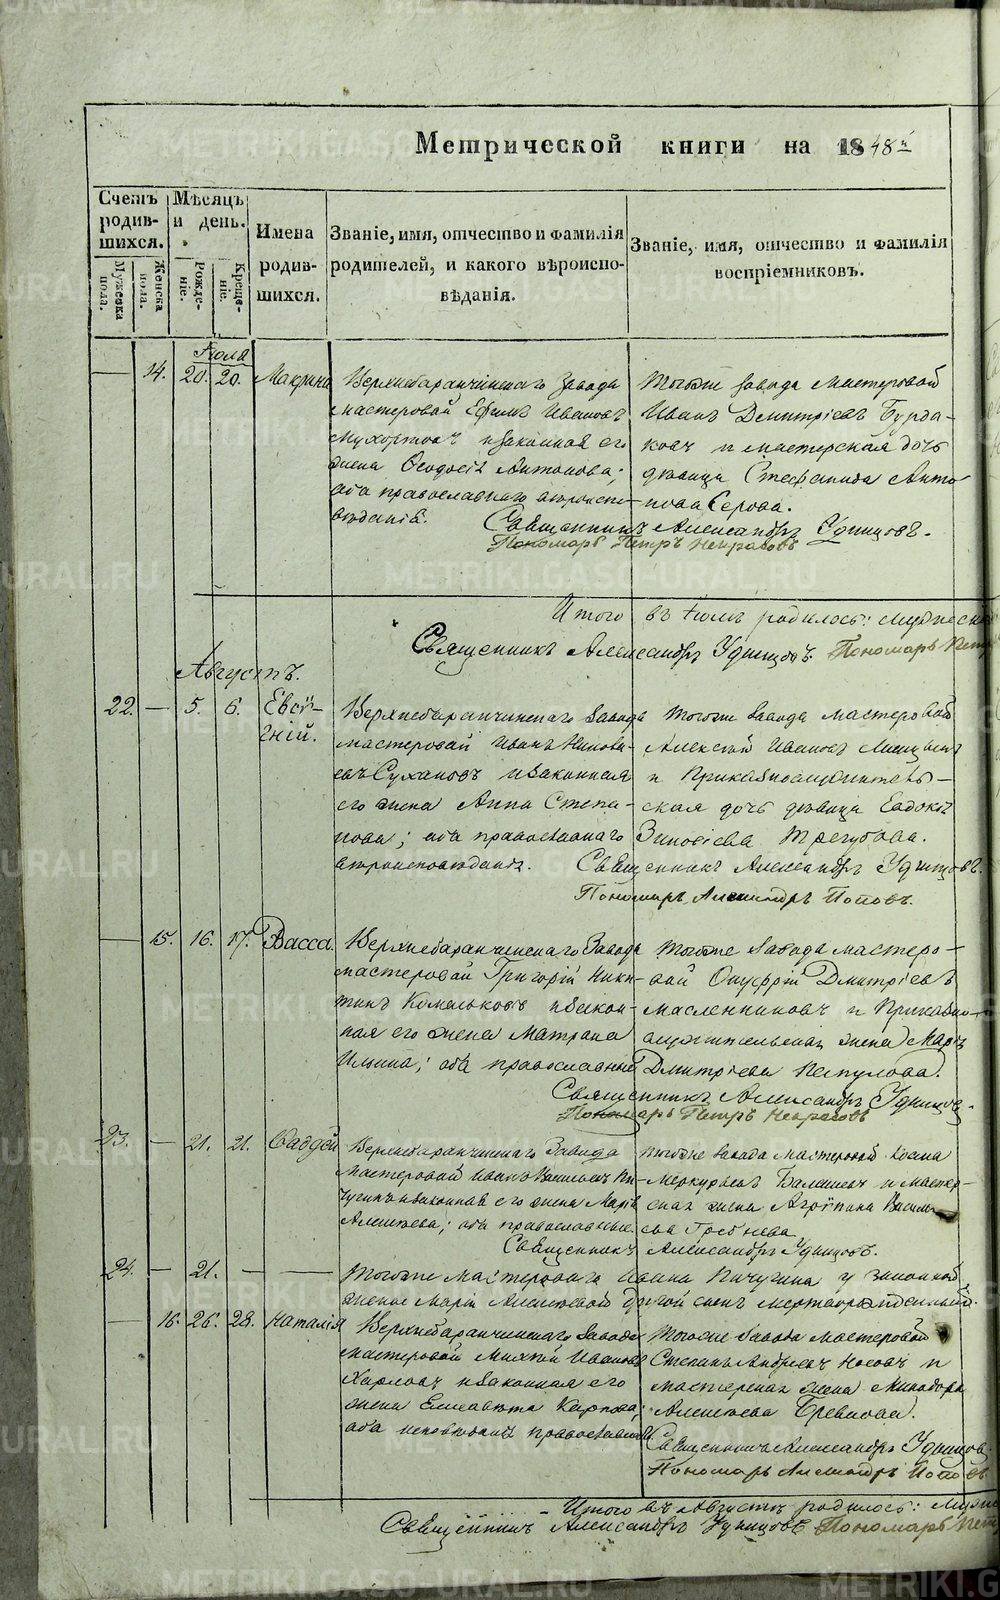 Метрической книги на 1848й
Счетъ родившихся.
Мѣсяцъ и день.
Имена родившихся.
Званіе, имя, отчество и фамилія родителей, и какого вѣроисповѣданія.
Званіе, имя, отчество и фамилія воспріемниковъ.
Мужеска пола.
Женска пола.
Рожденіе.
Крещеніе.
Іюля
14. 20. 20. Макрина
Верхнебаранчинскаго Завода
мастеровой Ефимъ Ивановъ
и законная его
жена Ѳеодосія Антонова;
оба православнаго вѣроиспо-
вѣданія.
Тогоже завода мастеровой
Иванъ Дмитріевъ Бурда-
ковъ и мастерская дочь
дѣвица Стефанида Анто-
нова Серова.
Священникъ Александръ Удинцовъ.
Пономарь Петръ Некрасовъ
Итого въ Іюлѣ родилось: мужеска
Священникъ Александръ Удинцовъ. Пономарь Петръ
Августъ.
22. — 5. 6. Евсиг-
ній.
Верхнебаранчинскаго Завода
мастеровой Иванъ
Сухановъ и законная
его жена Анна Степа-
нова; оба православнаго
вѣроисповѣданія.
Тогоже завода мастеровой
Алексѣй Ивановъ
и Приказнослужитель-
ская дочь дѣвица Евдокія
Зиновіева Трегубова.
Священникъ Александръ Удинцовъ.
Пономарь Александръ Поповъ.
— 15. 16. 17. Васса.
Верхнебаранчинскаго Завода
мастеровой Григорій Ники-
тинъ Комельковъ и закон-
ная его жена Матрона
Ильина; оба православные
Тогоже завода мастеро-
вой Онуфрій Дмитріевъ
Масленниковъ и Приказно-
служительская жена Марія
Дмитріева Пепулова.
Священникъ Александръ Удинцовъ.
Пономарь Петръ Некрасовъ
23. — 21. 21. Фаддей
Верхнебаранчинскаго Завода
мастеровой Иванъ Васильевъ Пи-
чугинъ и законная его жена Марія
Алексѣева; оба православные.
Тогоже завода мастеровой Козма
Меркурьевъ Балашевъ и мастер-
ская жена Агрипина Василь-
ева Гребнева
Священникъ Александръ Удинцовъ.
24. — 21. — —
Тогоже мастероваго Ивана Пичугина у законной
жены Маріи Алексѣевой другой сынъ мертворожденный.
— 16. 26. 28. Наталія
Верхнебаранчинскаго Завода
мастеровой Михей Ивановъ
Харловъ и законная его
жена Елисавета Карпова;
оба исповѣданія православнаго
Тогоже завода мастеровой
Степанъ Андреевъ Носовъ и
мастерская жена Минодора
Алексѣева Бревнова.
Священникъ Александръ Удинцовъ.
Пономарь Александръ Поповъ
Итого въ Августѣ родилось:
Священникъ Александръ Удинцовъ Пономарь Петръ
METRIKI.GASO-URAL.RU